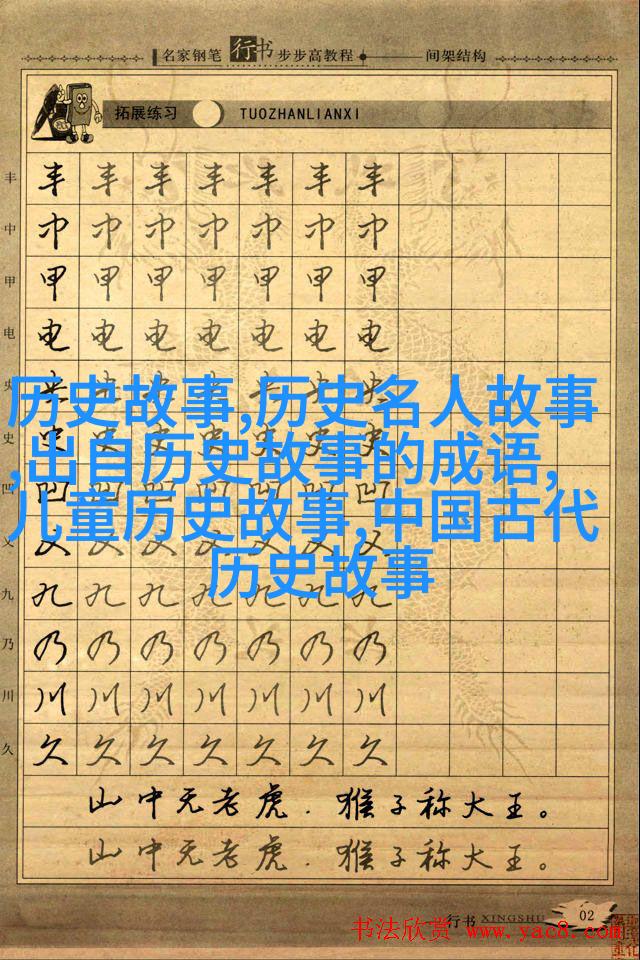 名家钢笔 行书 步步高教程 间架结构
拓展练习 TUOZHANLIANXI
丰 丰 丰 丰 丰 丰 丰 丰
中 中 中 中 中 中 中 中
甲 甲 甲 甲 甲 甲 甲 甲
电 电 电 电 电 电 电 电
央 央 央 央 央 央 央 央
历史故事,历史名人故事
史 史 史 史 史 史 史 史
,出自历史故事的成语,
凹 凹 凹 凹 凹 凹 凹 凹
儿童历史故事,中国古代
义 义 义 义 义 义 义 义
历史故事
九 九 九 九 九 九 九 九
乃 乃 乃 乃 乃 乃 乃 乃
川 川 川 川 川 川 川 川
久 久 久 久 久 久 久 久
山中无老虎.猴子称大王。
山中无老虎.猴子称大王。
行书 XINGSHU 02
书法欣赏 www.yac8.com